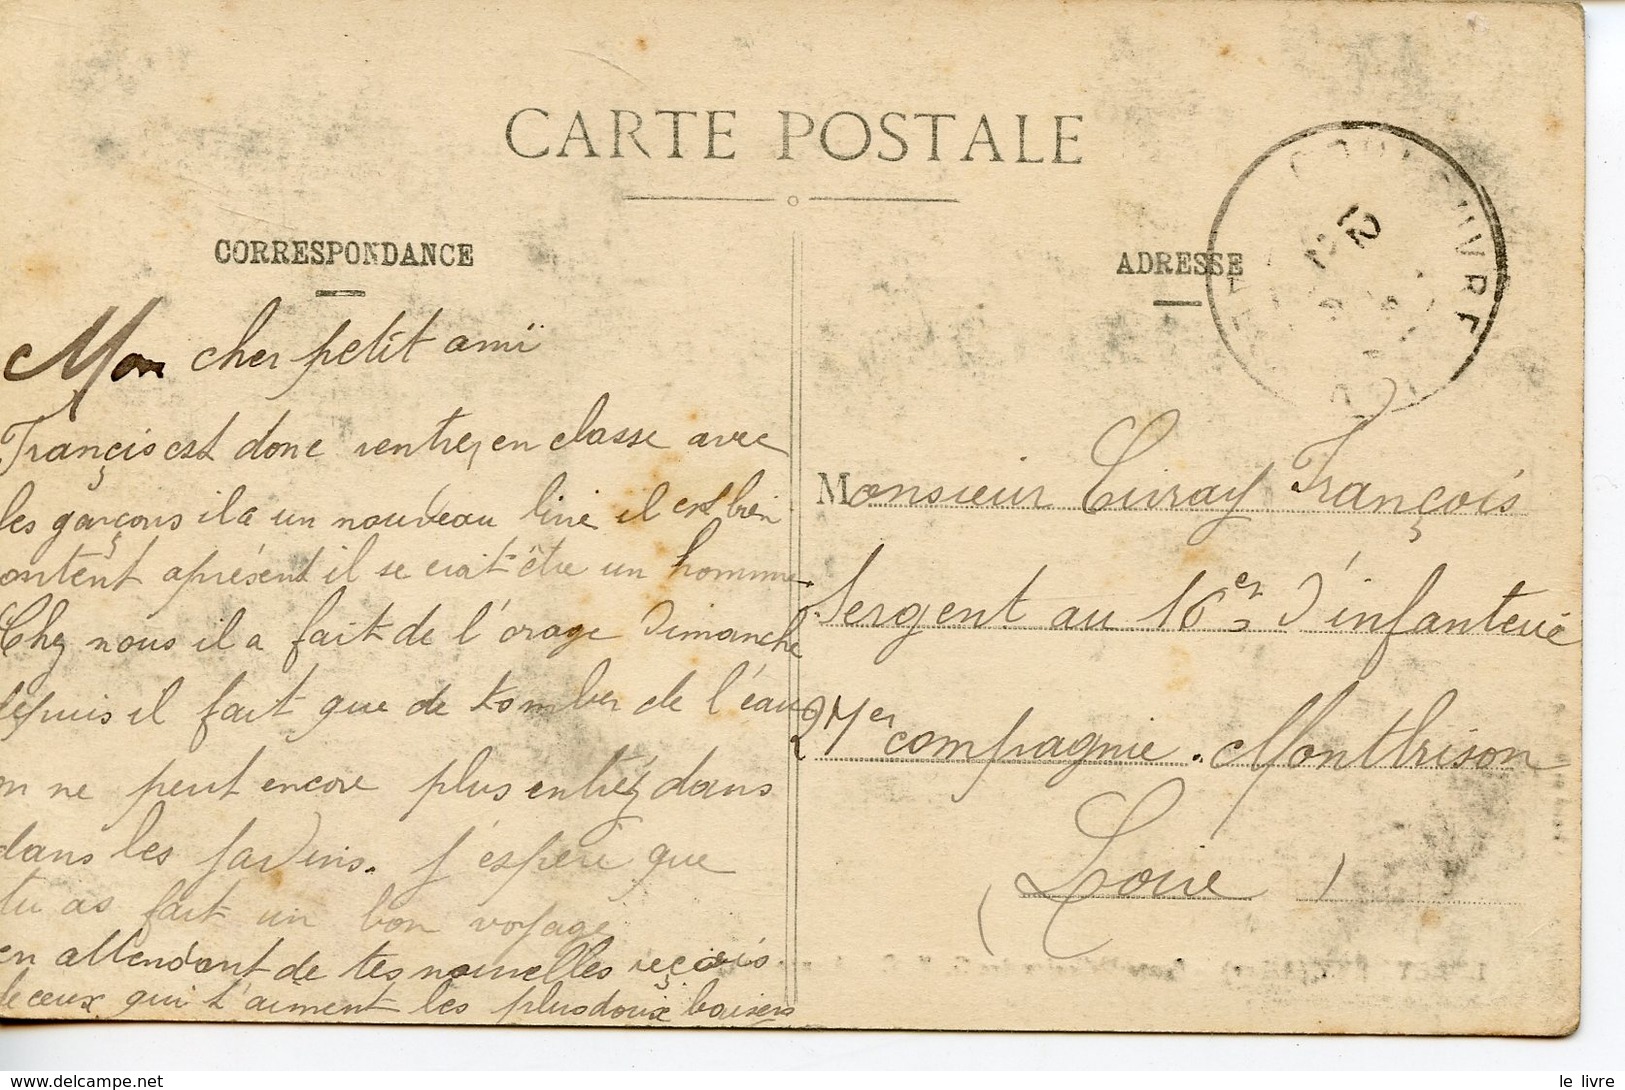 CARTE POSTALE
CORRESPONDANCE
Mon cher petit ami
François est donc rentrer en classe avec
les garçons il a un nouveau livre il est bien
ontent aprésent il se croit être un homme.
Chez nous il a fait de l'orage Dimanche
depuis il fait que de tomber de l'eau
on ne peut encore plus entrez dans
dans les jardins. j'espère que
tu as fait un bon voyage
en attendant de tes nouvelles reçois
de ceux qui t'aiment les plus doux baisers
ADRESSE
Monsieur François
Sergent au 16er d'infanterie
27er compagnie. Montbrison
(Loire)
le livre